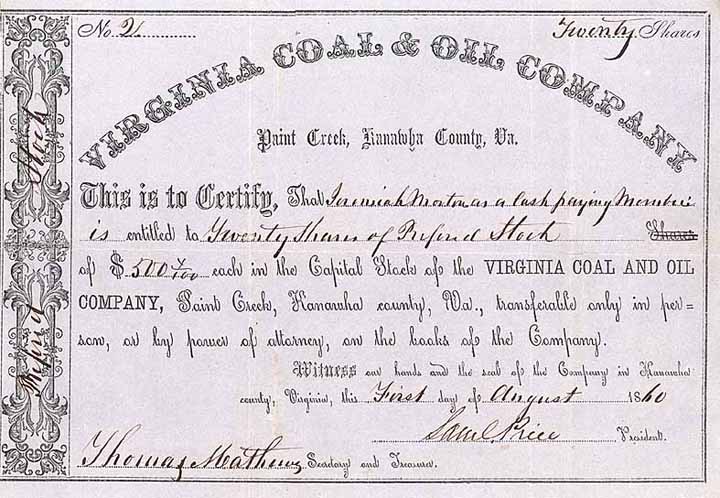 No. 2
Twenty Shares
VIRGINIA COAL & OIL COMPANY
Paint Creek, Kanawha County, Va.
This is to Certify, That Jeremiah Morton as a Cash paying Member
is entitled to Twenty Shares of Prefered Stock Shares
of $500 each in the Capital Stock of the VIRGINIA COAL AND OIL
COMPANY, Paint Creek, Kanawha county, Va., transferable only in per-
son, or by power of attorney, on the books of the Company.
Witness our hands and the seal of the Company in Kanawha
county, Virginia, this First day of August 1860
Saml Price President.
Thomas Mathews Secretary and Treasurer.
Stock